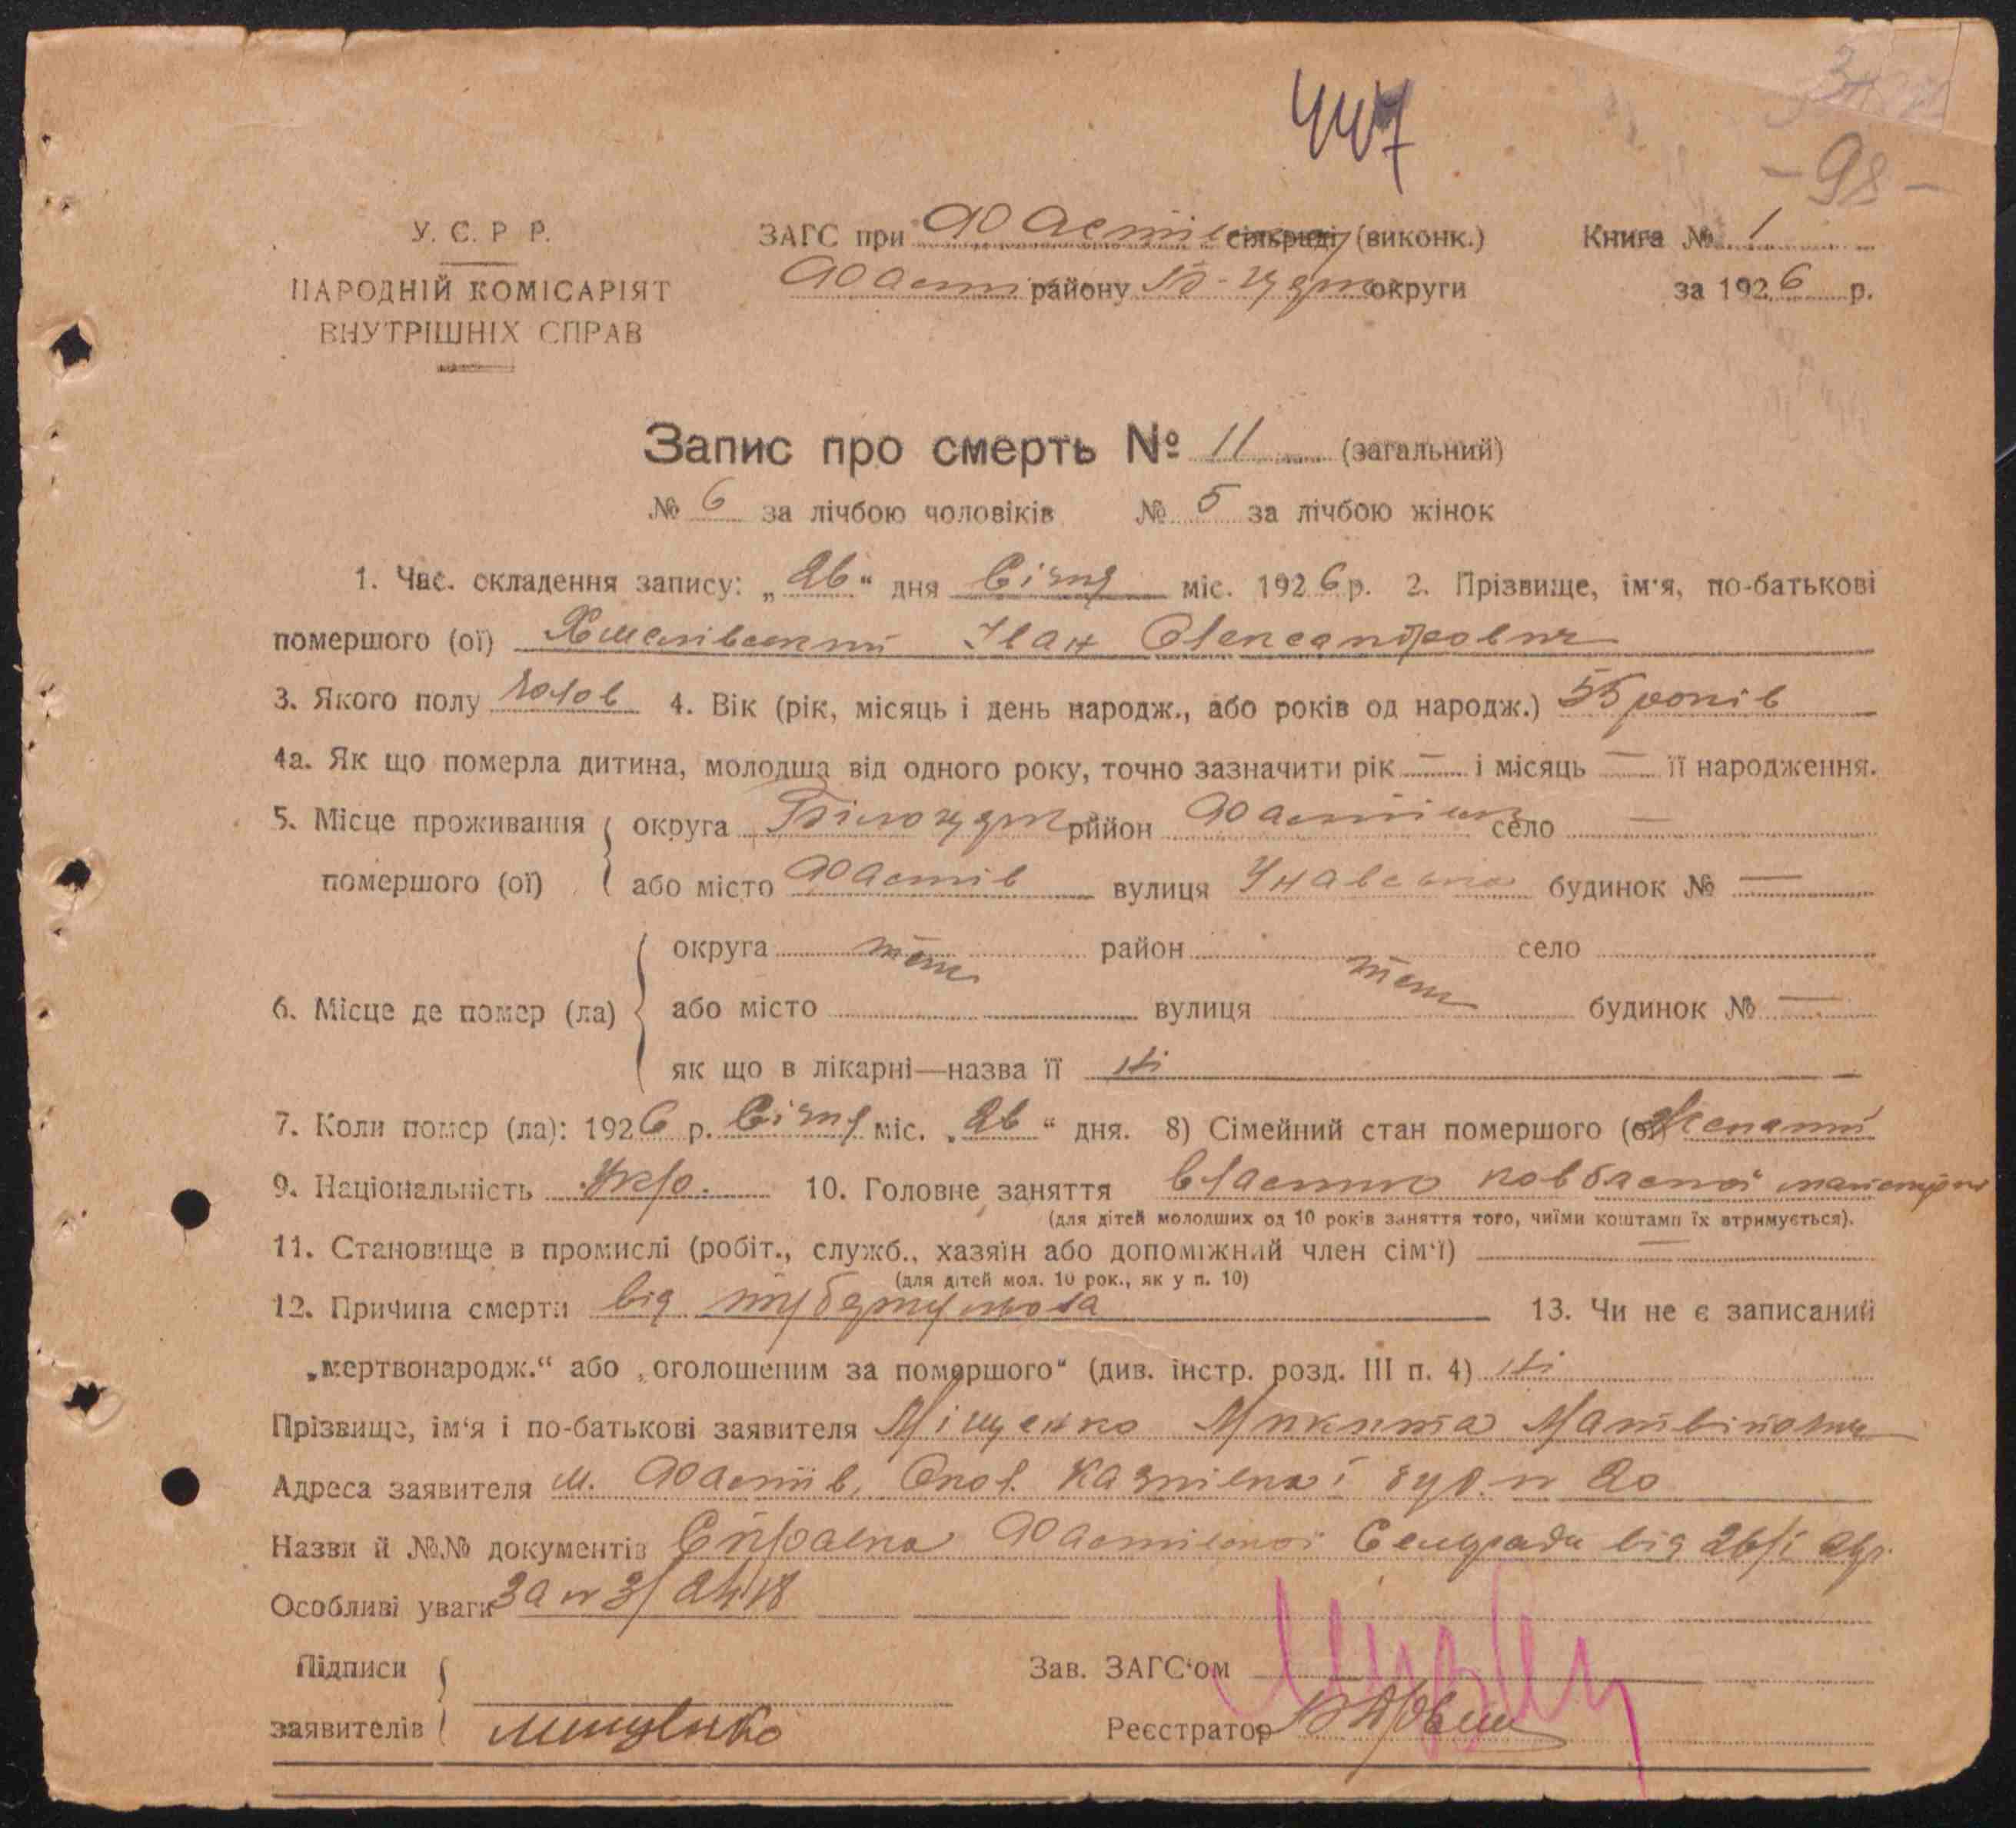 447
- 98 -
У. С. Р Р.
НАРОДНІЙ КОМІСАРІЯТ
ВНУТРІШНІХ СПРАВ
ЗАГС при Фастівськ сільраді (виконк.)
Фасті району Б-Церк округи
Книга № 1
за 1926 р.
Запис про смерть № 11 (загальний)
№ 6 за лічбою чоловіків № 5 за лічбою жінок
1. Час. складення запису: „26“ дня Січня міс. 1926 р. 2. Прізвище, ім'я, по-батькові
помершого (ої) Хмелівський Іван Олександрович
3. Якого полу Чолов 4. Вік (рік, місяць і день народж., або років од народж.) 55 років
4а. Як що померла дитина, молодша від одного року, точно зазначити рік — і місяць — її народження.
5. Місце проживання округа Білоцерк рййон Фастівськ село —
помершого (ої) або місто Фастів вулиця будинок № —
6. Місце де помер (ла) округа теж район село
або місто вулиця теж будинок № —
як що в лікарні—назва її Ні
7. Коли помер (ла): 1926 р. Січня міс. „26“ дня. 8) Сімейний стан помершого (ої) Жонатий
9. Національність Укр. 10. Головне заняття власник ковбасної майстерні
(для дітей молодших од 10 років заняття того, чиїми коштами їх втримується).
11. Становище в промислі (робіт., служб., хазяїн або допоміжний член сім'ї) —
(для дітей мол. 10 рок., як у п. 10)
12. Причина смерти від туберкульоза 13. Чи не є записаний
„мертвонародж.“ або „оголошеним за помершого“ (див. інстр. розд. III п. 4) Ні
Прізвище, ім'я і по-батькові заявителя Міщенко Микита Матвійович
Адреса заявителя м. Фастів, буд. № 20
Назви й №№ документів Справка Фастівської Селиради від 26/I 26р.
Особливі уваги за № 3/2418
Підписи Зав. ЗАГС'ом
заявителів Мищенко Реєстратор